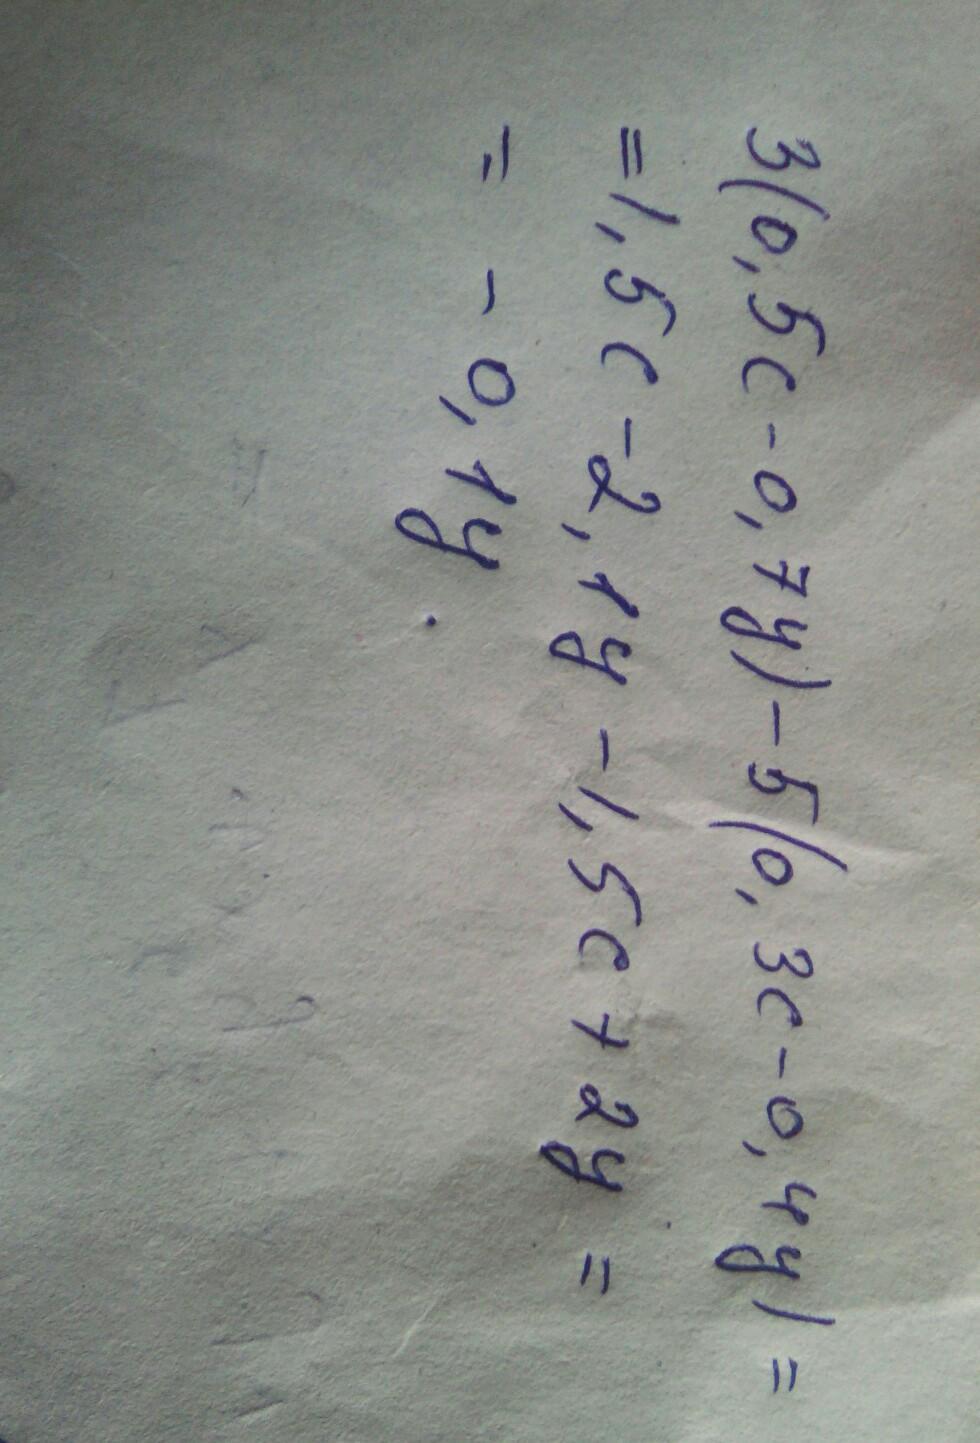 3(0,5c-0,7y)-5(0,3c-0,4y)=
=1,5c-2,1y-1,5c+2y=
= -0,1y.